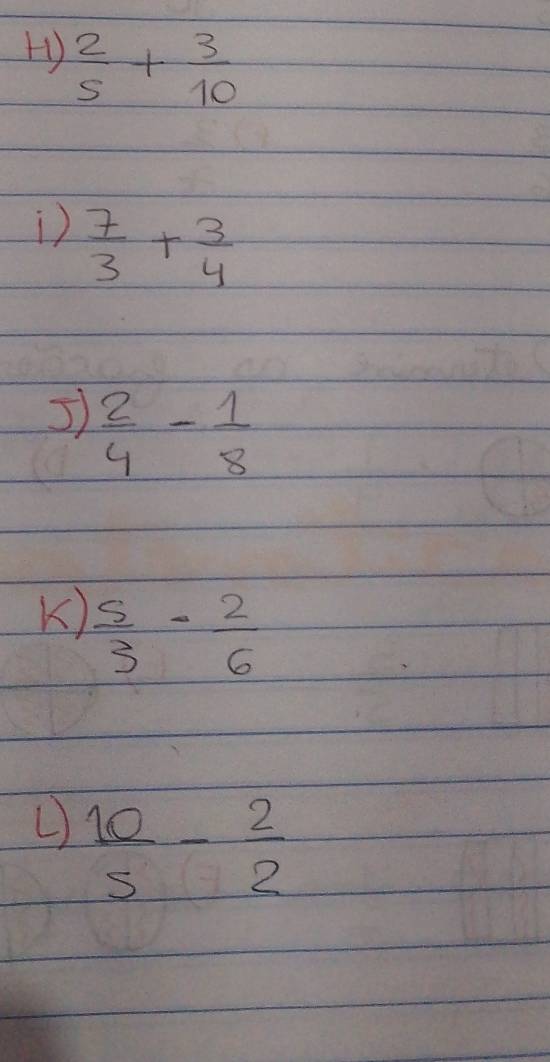 H) 2/5 + 3/10
i) 7/3 + 3/4
J) 2/4 - 1/8
K) 5/3 - 2/6
L) 10/5 - 2/2